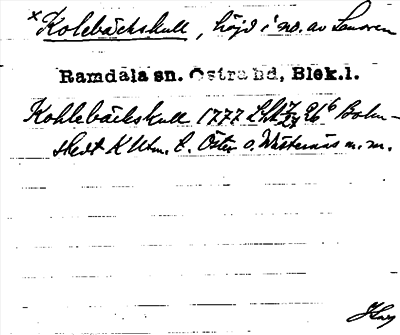 × Kolebäckskull, höjd i no. av Senoren
Ramdala sn. Östra hd, Blek.l.
Kohlebäckskull 1777 LSA 7/27 26⁶ Bolm-
stedt K Utm. t. Öster o. Westernäs m. m.